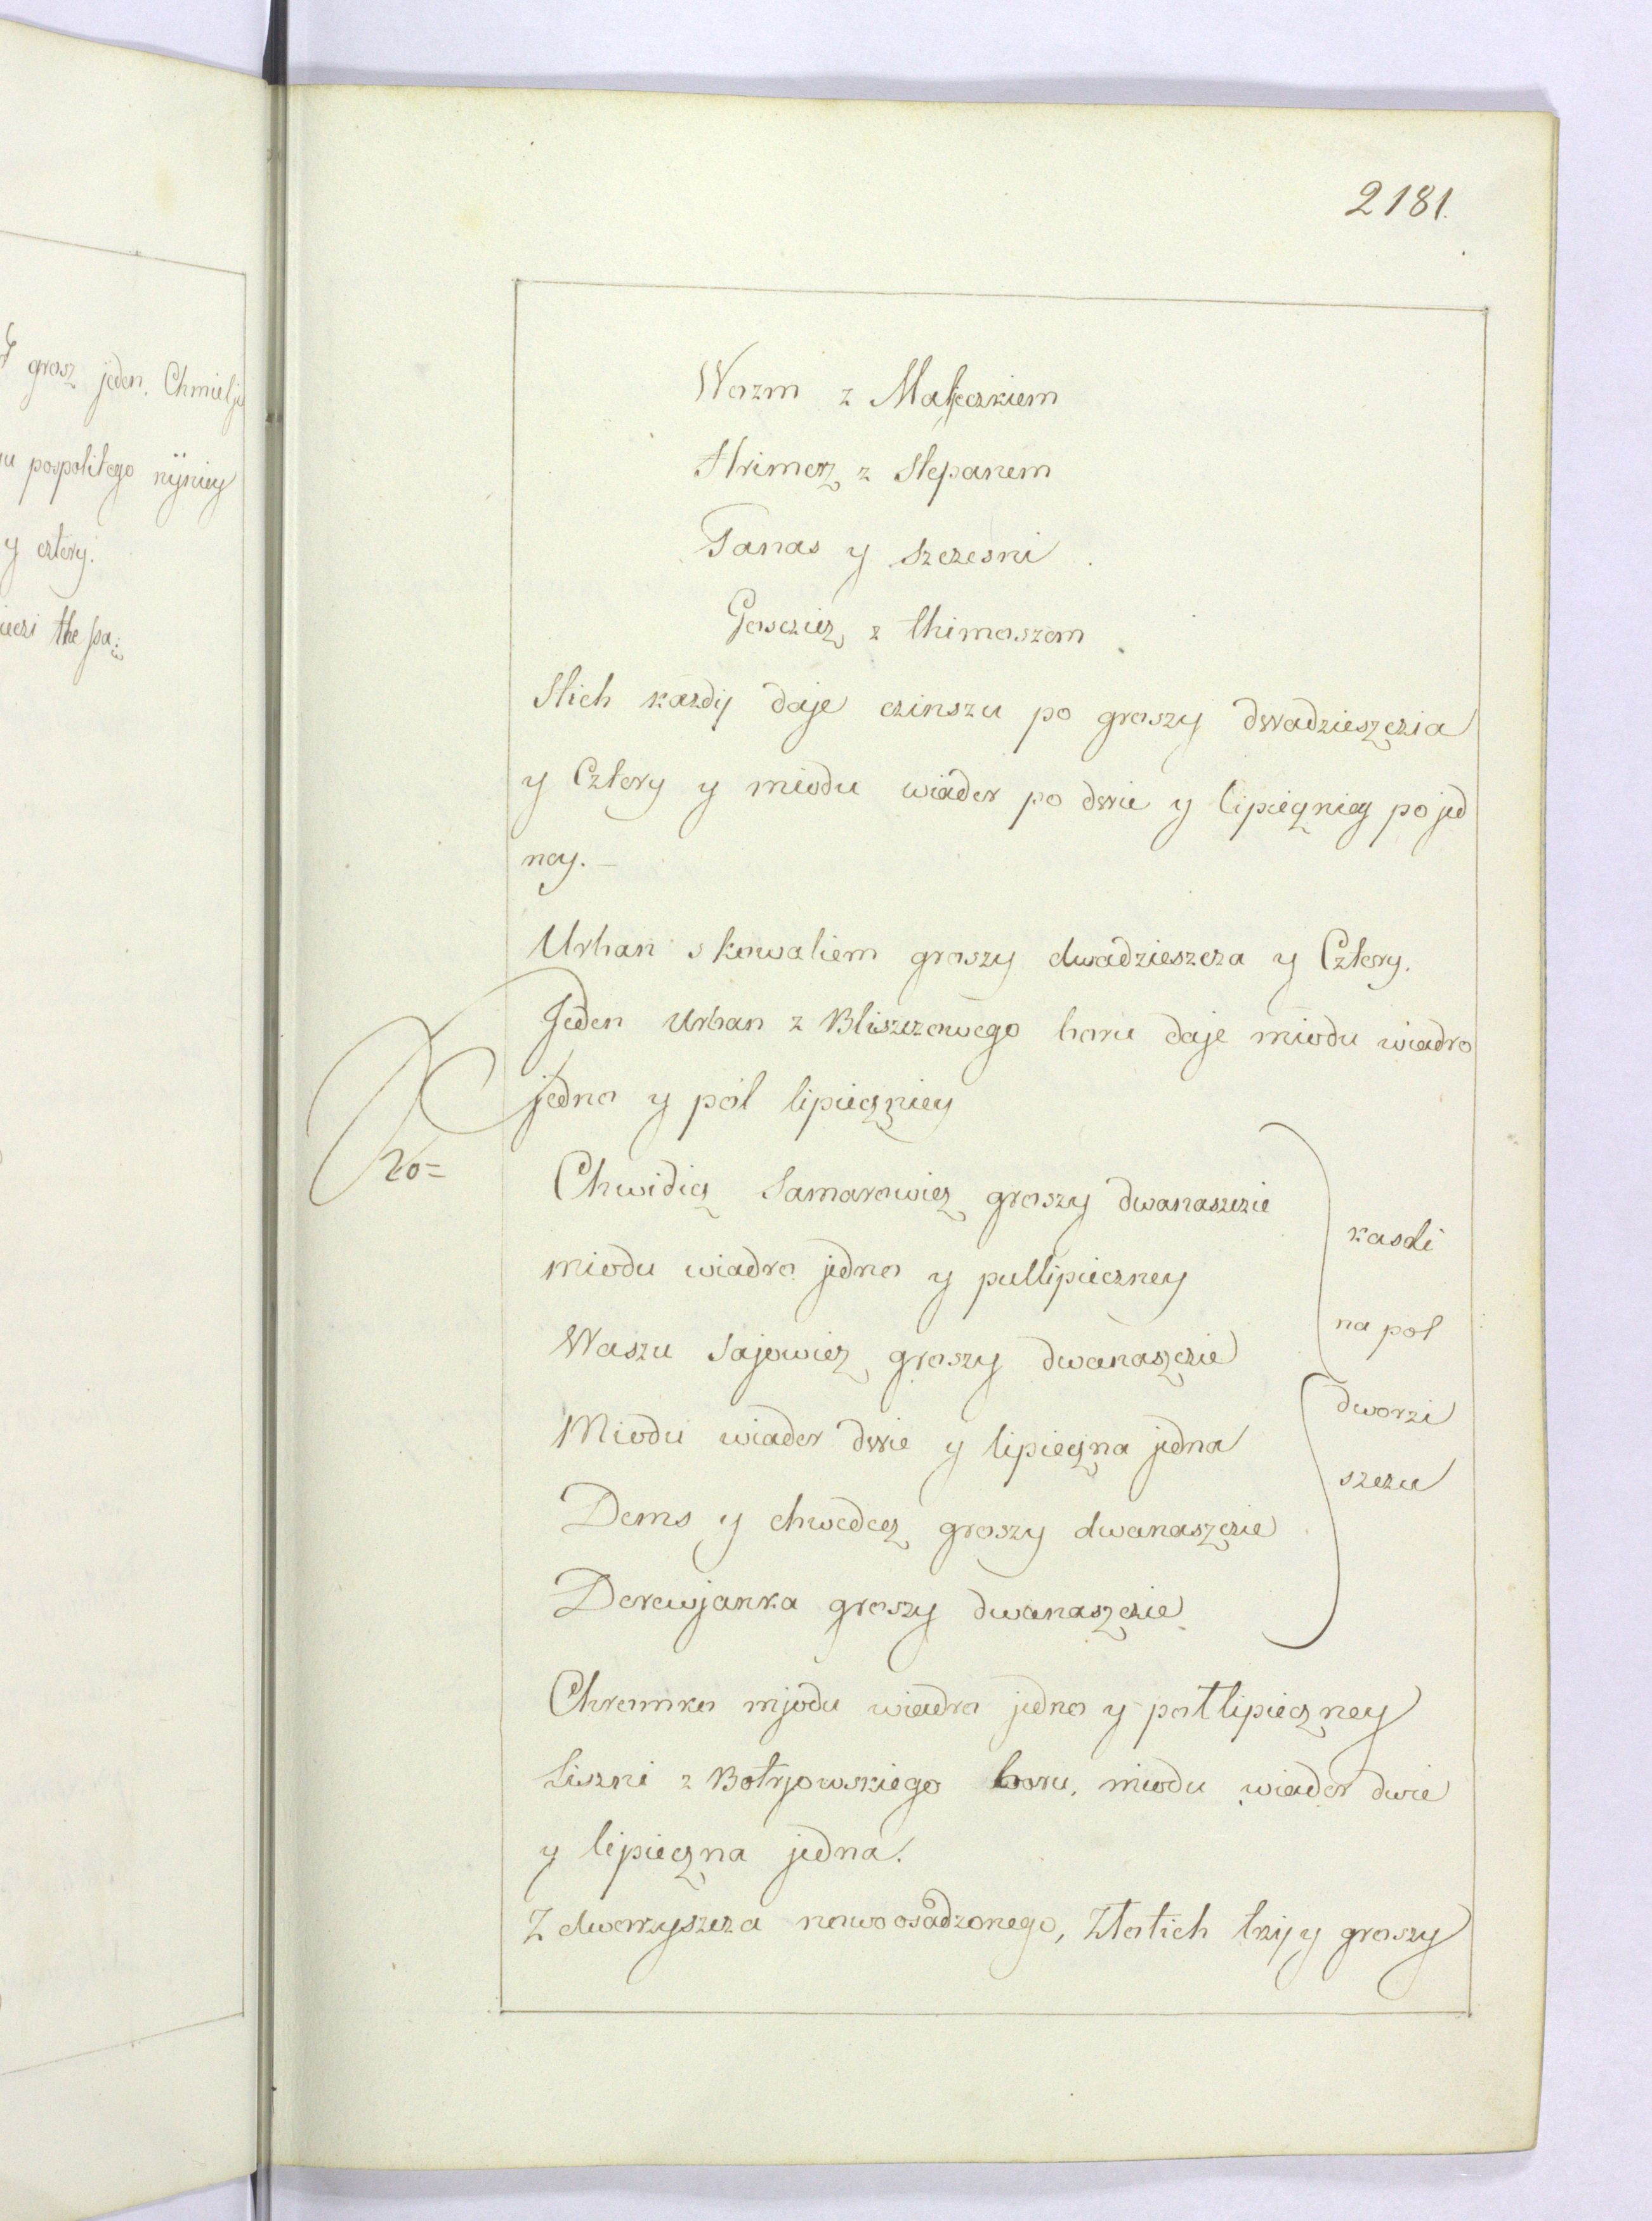 2181.
grosz jeden. Chmielju
pospolitego nÿniey
y cztery.
Wozm z Małeczkiem
Hrimercz z Stepanem
Tanas y Szczesni
Gosczicz z thimoszem
Stich każdy daje czinszu po groszy dwadzieszczia
y Cztery y miodu wiader po dwie y lipiecżniey po jed
ney.
Urban s kowaliem groszy dwadzieszcza y Cztery.
Jeden Urban z Bliszczowego boru daje miodu wiadro
jedno y pół lipieczniey
Chwidicz Samarowicz groszy dwanaszczie
miodu wiadro jedno y pullipieczney
Waszu Sajowicz groszy dwanaszczie
Miodu wiader dwie y lipieczna jedna
Dems y chwedecz groszy dwanaszczie
Derewjanka groszy dwanaszczie
kasdi
na pol
dworzi
szczu
Chromko mjodu wiadro jedno y połlipieczney
Liszni z Bołzjowskiego boru, miodu wiader dwie
y lipieczna jedna.
Z dworzyszcza nowoosadzonego, Złotich trzy y groszy